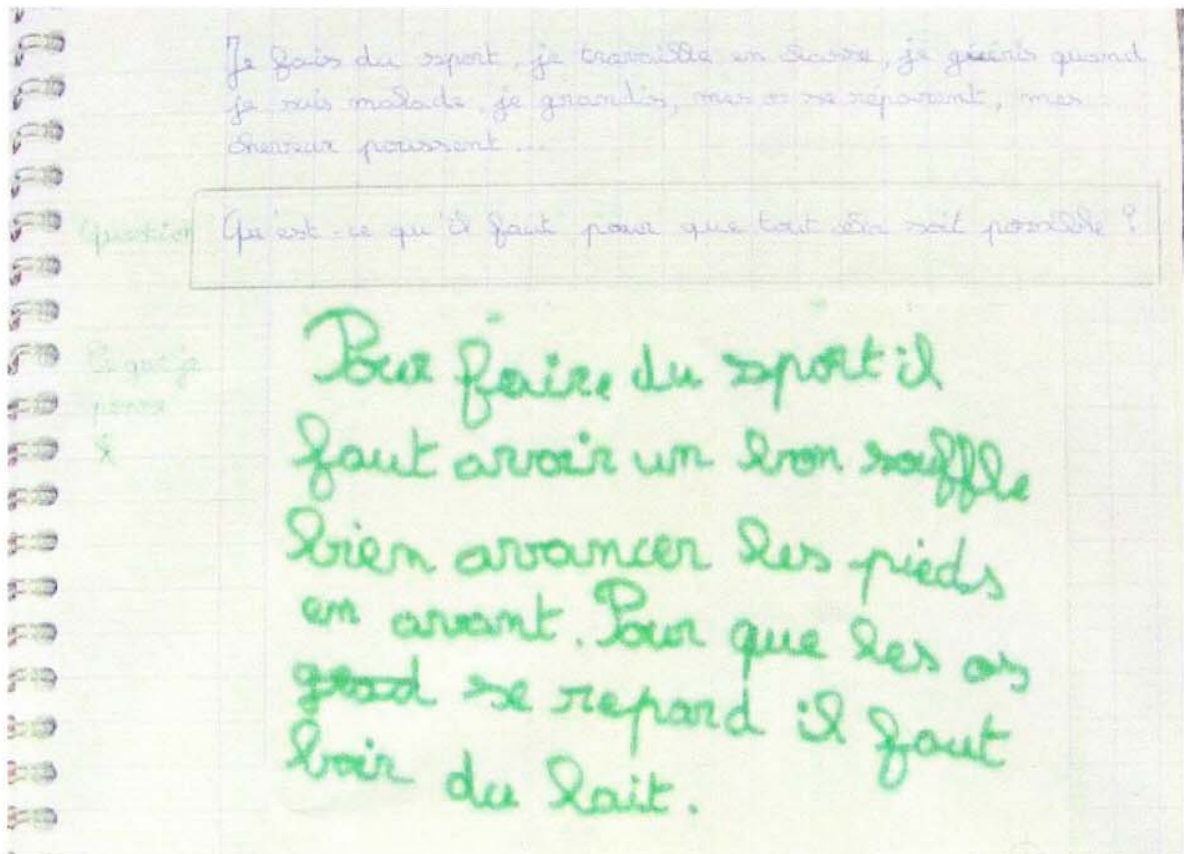 Je fais du sport, je travaille en classe, je guéris quand
je suis malade, je grandis, mes os se réparent, mes
cheveux poussent...
Question
Qu'est-ce qu'il faut pour que tout cela soit possible ?
Ce que je
pense
Pour faire du sport il
faut avoir un bon souffle
bien avancer les pieds
en avant. Pour que les os
se repard il faut
boir du lait.